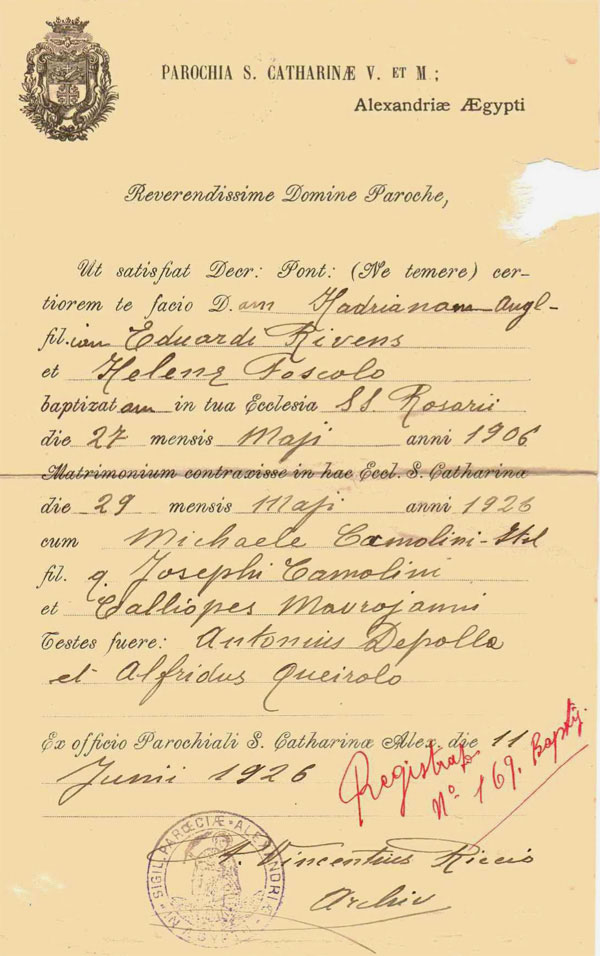 PAROCHIA S. CATHARINÆ V. ET M ;
Alexandriæ Ægypti
Reverendissime Domine Paroche,
Ut satisfiat Decr: Pont: (Ne temere) cer-
tiorem te facio D. am Hadrianam Angl-
fil. iam Eduardi Rivens
et Helenæ Foscolo
baptizat am in tua Ecclesia SS Rosarii
die 27 mensis Maji anni 1906
Matrimonium contraxisse in hac Eccl. S. Catharinæ
die 29 mensis Maji anni 1926
cum Michaele Camolini-Ital
fil. q. Josephi Camolini
et Calliopes Mavrojanni
Testes fuere: Antonius Depolla
et Alfridus Queirolo
Ex officio Parochiali S. Catharinæ Alex. die 11
Junii 1926
Registrato
No. 169. Baptiz.
SIGIL. PARŒCIÆ ALEXANDRIÆ
Vincentius Riccio
Archiv